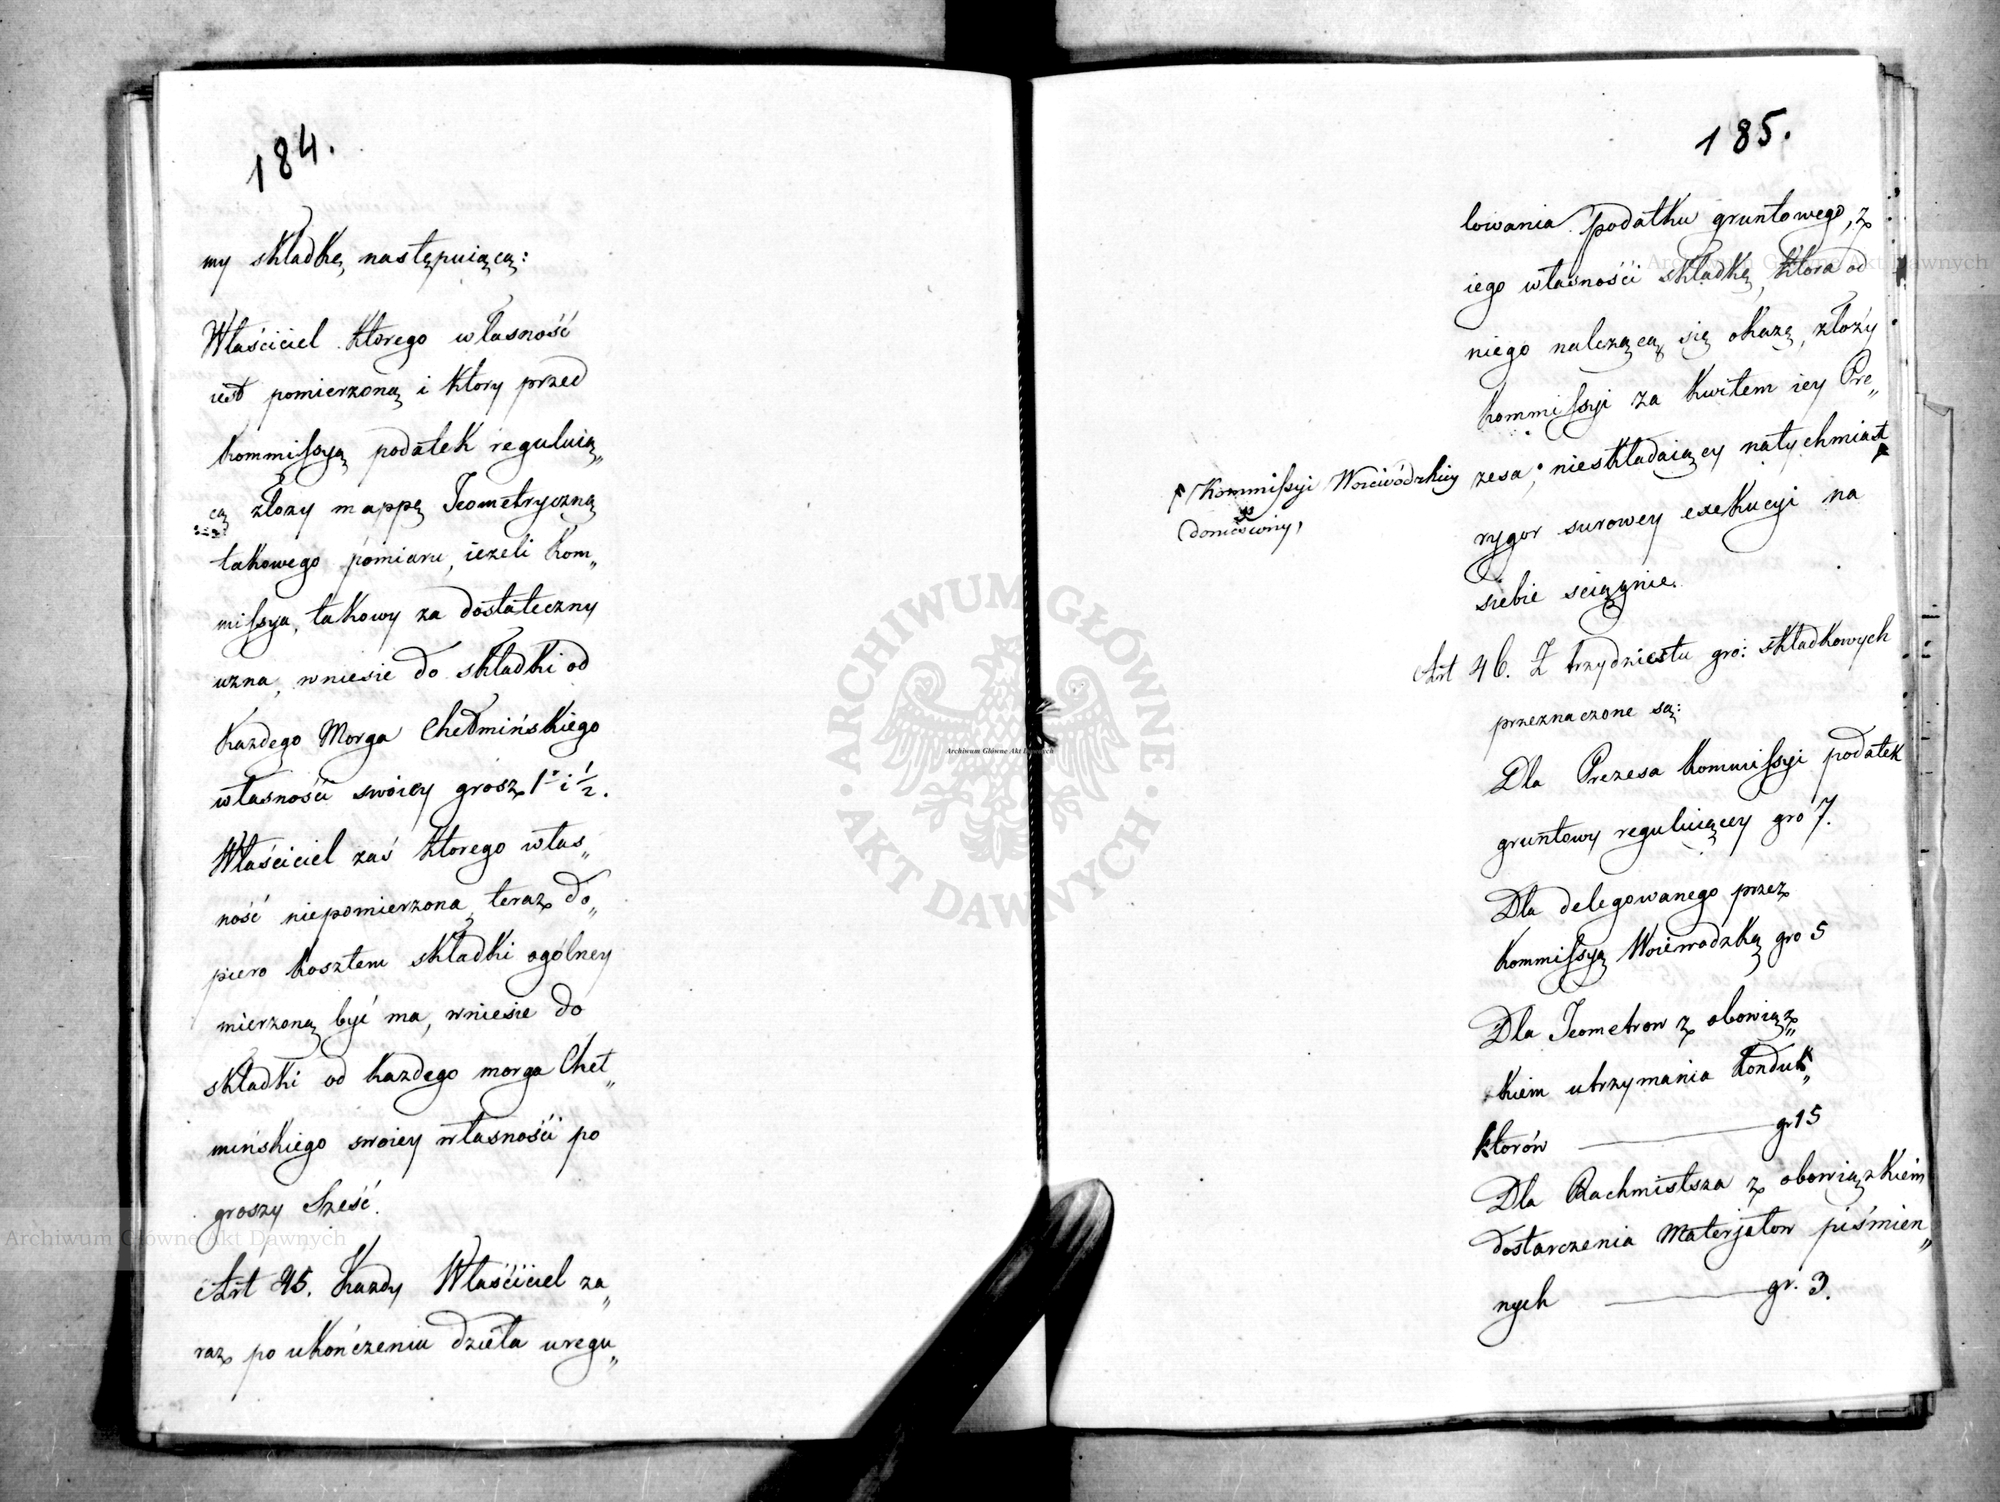 184.
my składkę następuiącą:
Właściciel ktorego własność
iest pomierzoną i ktory przed
kommissyą podatek reguluią„
cą złozy mappę Jeometryczną
takowego pomiaru, iezeli kom„
missya, takowy za dostateczny
uzna, wniesie do składki od
kazdego Morga Chełmińskiego
własności swoiey grosz 1. i 1/2.
Właściciel zaś ktorego włas„
ność niepomierzona teraz do„
piero kosztem składki ogólney
mierzoną być ma, wniesie do
składki od kazdego morga Cheł„
mińskiego swoiey własności po
groszy Sześć.
Art 45. Kazdy Właściciel za„
raz po ukończeniu dzieła uregu„
185.
lowania podatku gruntowego, z
iego własności składkę, ktora od
niego nalezącą się okazę, złoży
kommissyi za kwitem iey Pre„
zesa; nieskładaiący natychmiast
Kommissyi Woiewódzkiey
doniesiony,
rygor surowey exekucyi na
siebie sciągnie.
Art 46. Z trzydziestu gro: składkowych
przeznaczone są:
Dla Prezesa kommissyi podatek
gruntowy reguluiącey gro 7.
Dla delegowanego przez
kommissyą Woiewodzką gro 5
Dla Jeometrow z obowiąz„
kiem utrzymania konduk„
ktorów gr 15
Dla Rachmistsza z obowiązkiem
dostarczenia Materjałow piśmien„
nych gr. 3.
Archiwum Główne Akt Dawnych
Archiwum Główne Akt Dawnych
Archiwum Główne Akt Dawnych
ARCHIWUM GŁÓWNE
AKT DAWNYCH